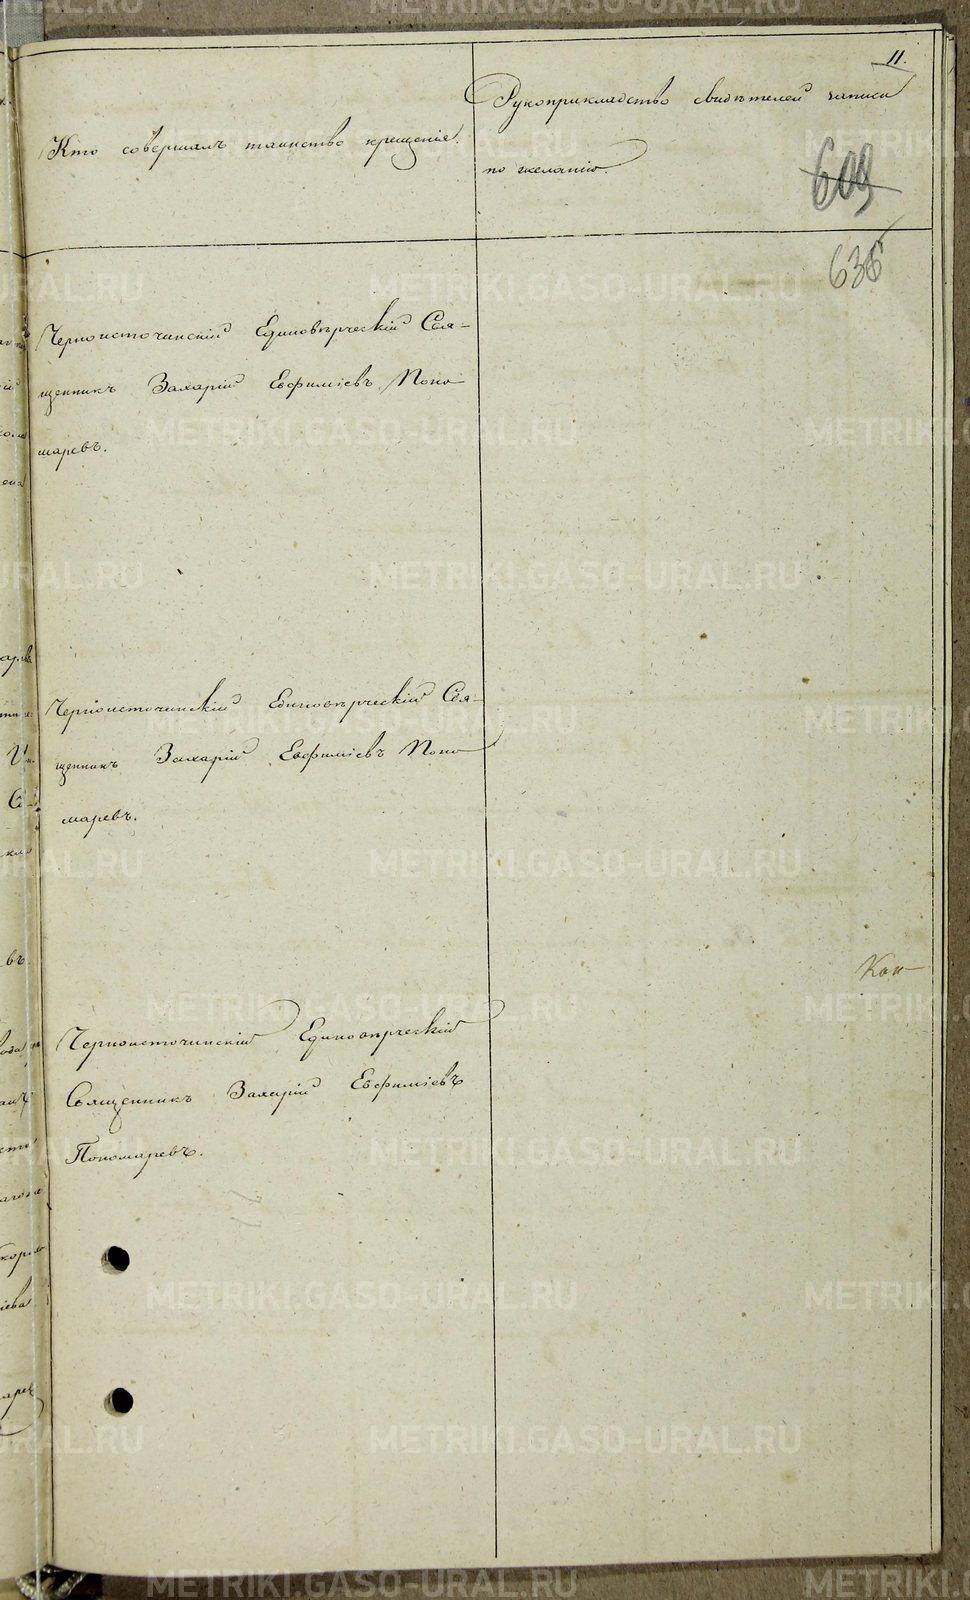 11.
Кто совершалъ таинство крещенія.
Рукоприкладство свидѣтелей записи
по желанію.
609
636
Черноисточинскій Единовѣрческій Свя-
щенникъ Захарій Евфиміевъ Поно-
маревъ.
Черноисточинскій Единовѣрческій Свя-
щенникъ Захарій Евфиміевъ Поно-
маревъ.
Черноисточинскій Единовѣрческій
Священникъ Захарій Евфиміевъ
Пономаревъ.
METRIKI.GASO-URAL.RU